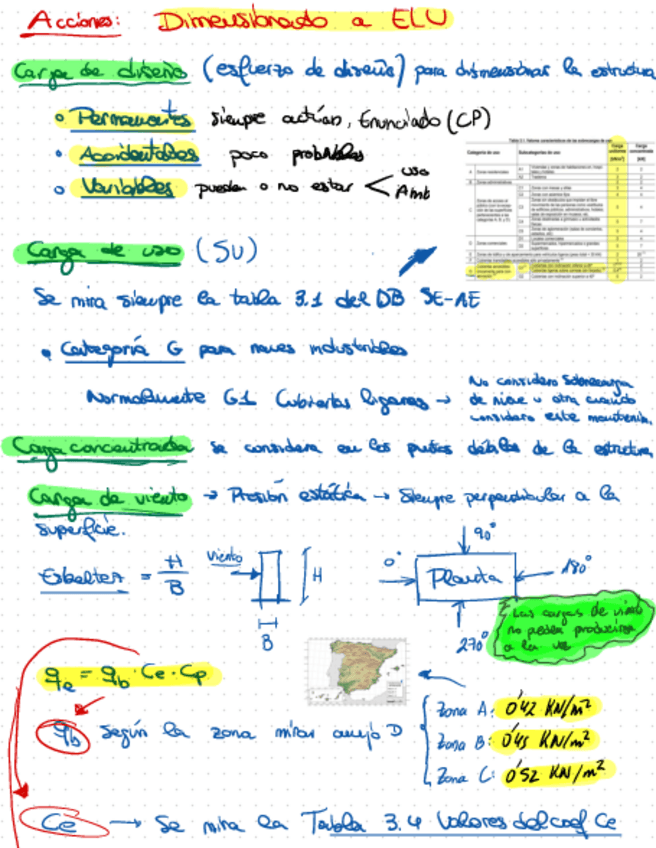 Acciones: Dimensionado a ELU
Carga de diseño (esfuerzo de diseño) para dismensionar la estructura
Permanentes siempre actúan, Enunciado (CP)
Accidentales poco probables
Variables pueden o no estar < uso
Amb
Tabla 3.1. Valores característicos de las sobrecargas de uso
Categoría de uso Subcategorías de uso Carga uniforme Carga concentrada
[kN/m²] [kN]
A Zonas residenciales A1
A2 Trasteros
B Zonas administrativas
C
C1 Zonas con mesas y sillas
C2 Zonas con asientos fijos
C3
C4
C5
D Zonas comerciales D1 Locales comerciales
D2
E
F
G
Carga de uso (SU)
Se mira siempre la tabla 3.1 del DB SE-AE
Categoría G para naves industriales
Normalmente G1 Cubiertas ligeras → No considero sobrecarga
de nieve u otra cuando
considero este mantenim.
Carga concentrada se considera en los puntos débiles de la estructura
Cargas de viento → Presión estática → Siempre perpendicular a la
superficie.
Esbeltez = H/B
viento
H
B
0°
90°
Planta
180°
270°
Las cargas de viento
no pueden producirse
a la vez
qe = qb · Ce · Cp
qb Según la zona mirar anejo D
Zona A: 0'42 KN/m²
Zona B: 0'45 KN/m²
Zona C: 0'52 KN/m²
Ce → Se mira la Tabla 3.4 Valores del coef Ce